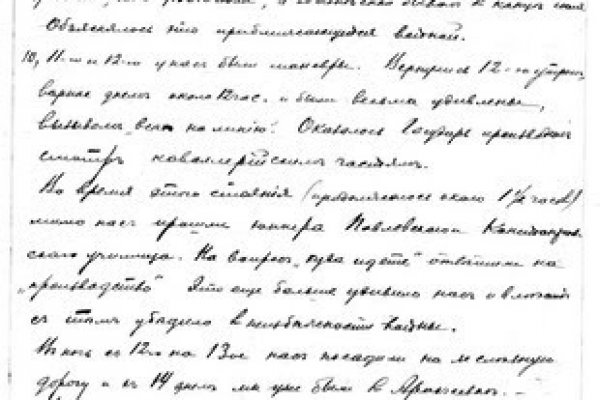 Объяснялось это приближающейся войной.
10, 11-го и 12-го у нас были маневры. Вернулись 12-го утром,
вернее днем около 12 час. и были весьма удивлены,
вызовом „всех на линию". Оказалось Государь производил
смотръ кавалерийскимъ частямъ.
Во время этого стояния (продолжалось около 1½ часов)
мимо насъ прошли юнкера Павловского
ского училища. На вопросъ „куда идете" ответили на
„производство" Это еще больше удивило насъ и
съ темъ убедило в неизбежности войны.
Въ ночь съ 12го на 13ое насъ посадили на железную
дорогу и съ 14 днемъ мы уже были в